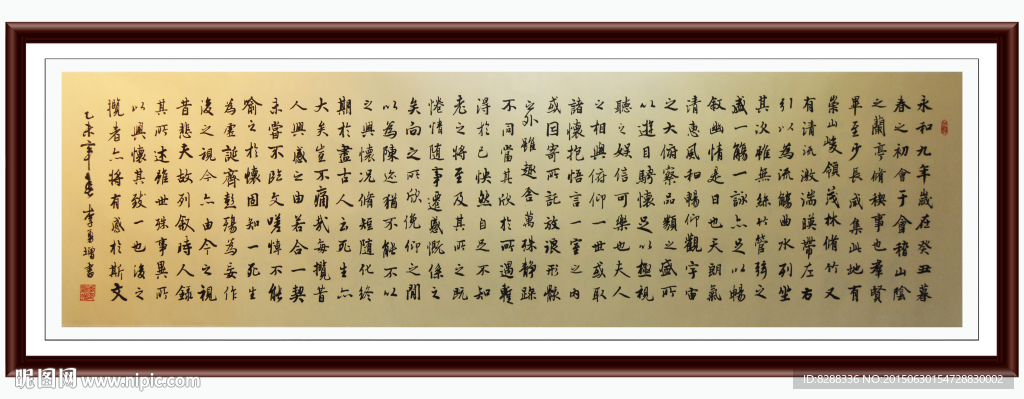 永和九年歲在癸丑暮
春之初會于會稽山陰
之蘭亭脩禊事也羣賢
畢至少長咸集此地有
崇山峻領茂林脩竹又
有清流激湍暎帶左右
引以為流觴曲水列坐
其次雖無絲竹管弦之
盛一觴一詠亦足以暢
敘幽情是日也天朗氣
清惠風和暢仰觀宇宙
之大俯察品類之盛所
以遊目騁懷足以極視
聽之娛信可樂也夫人
之相與俯仰一世或取
諸懷抱悟言一室之內
或因寄所託放浪形骸
之外雖趣舍萬殊靜躁
不同當其欣於所遇暫
得於己怏然自足不知
老之將至及其所之既
惓情隨事遷感慨係之
矣向之所欣俛仰之間
以為陳迹猶不能不以
之興懷况脩短隨化終
期於盡古人云死生亦
大矣豈不痛哉每攬昔
人興感之由若合一契
未嘗不臨文嗟悼不能
喻之於懷固知一死生
為虛誕齊彭殤為妄作
後之視今亦由今之視
昔悲夫故列敘時人錄
其所述雖世殊事異所
以興懷其致一也後之
攬者亦將有感於斯文
乙未年 李 書
昵图网 www.nipic.com
ID:8288336 NO:20150630154728830002